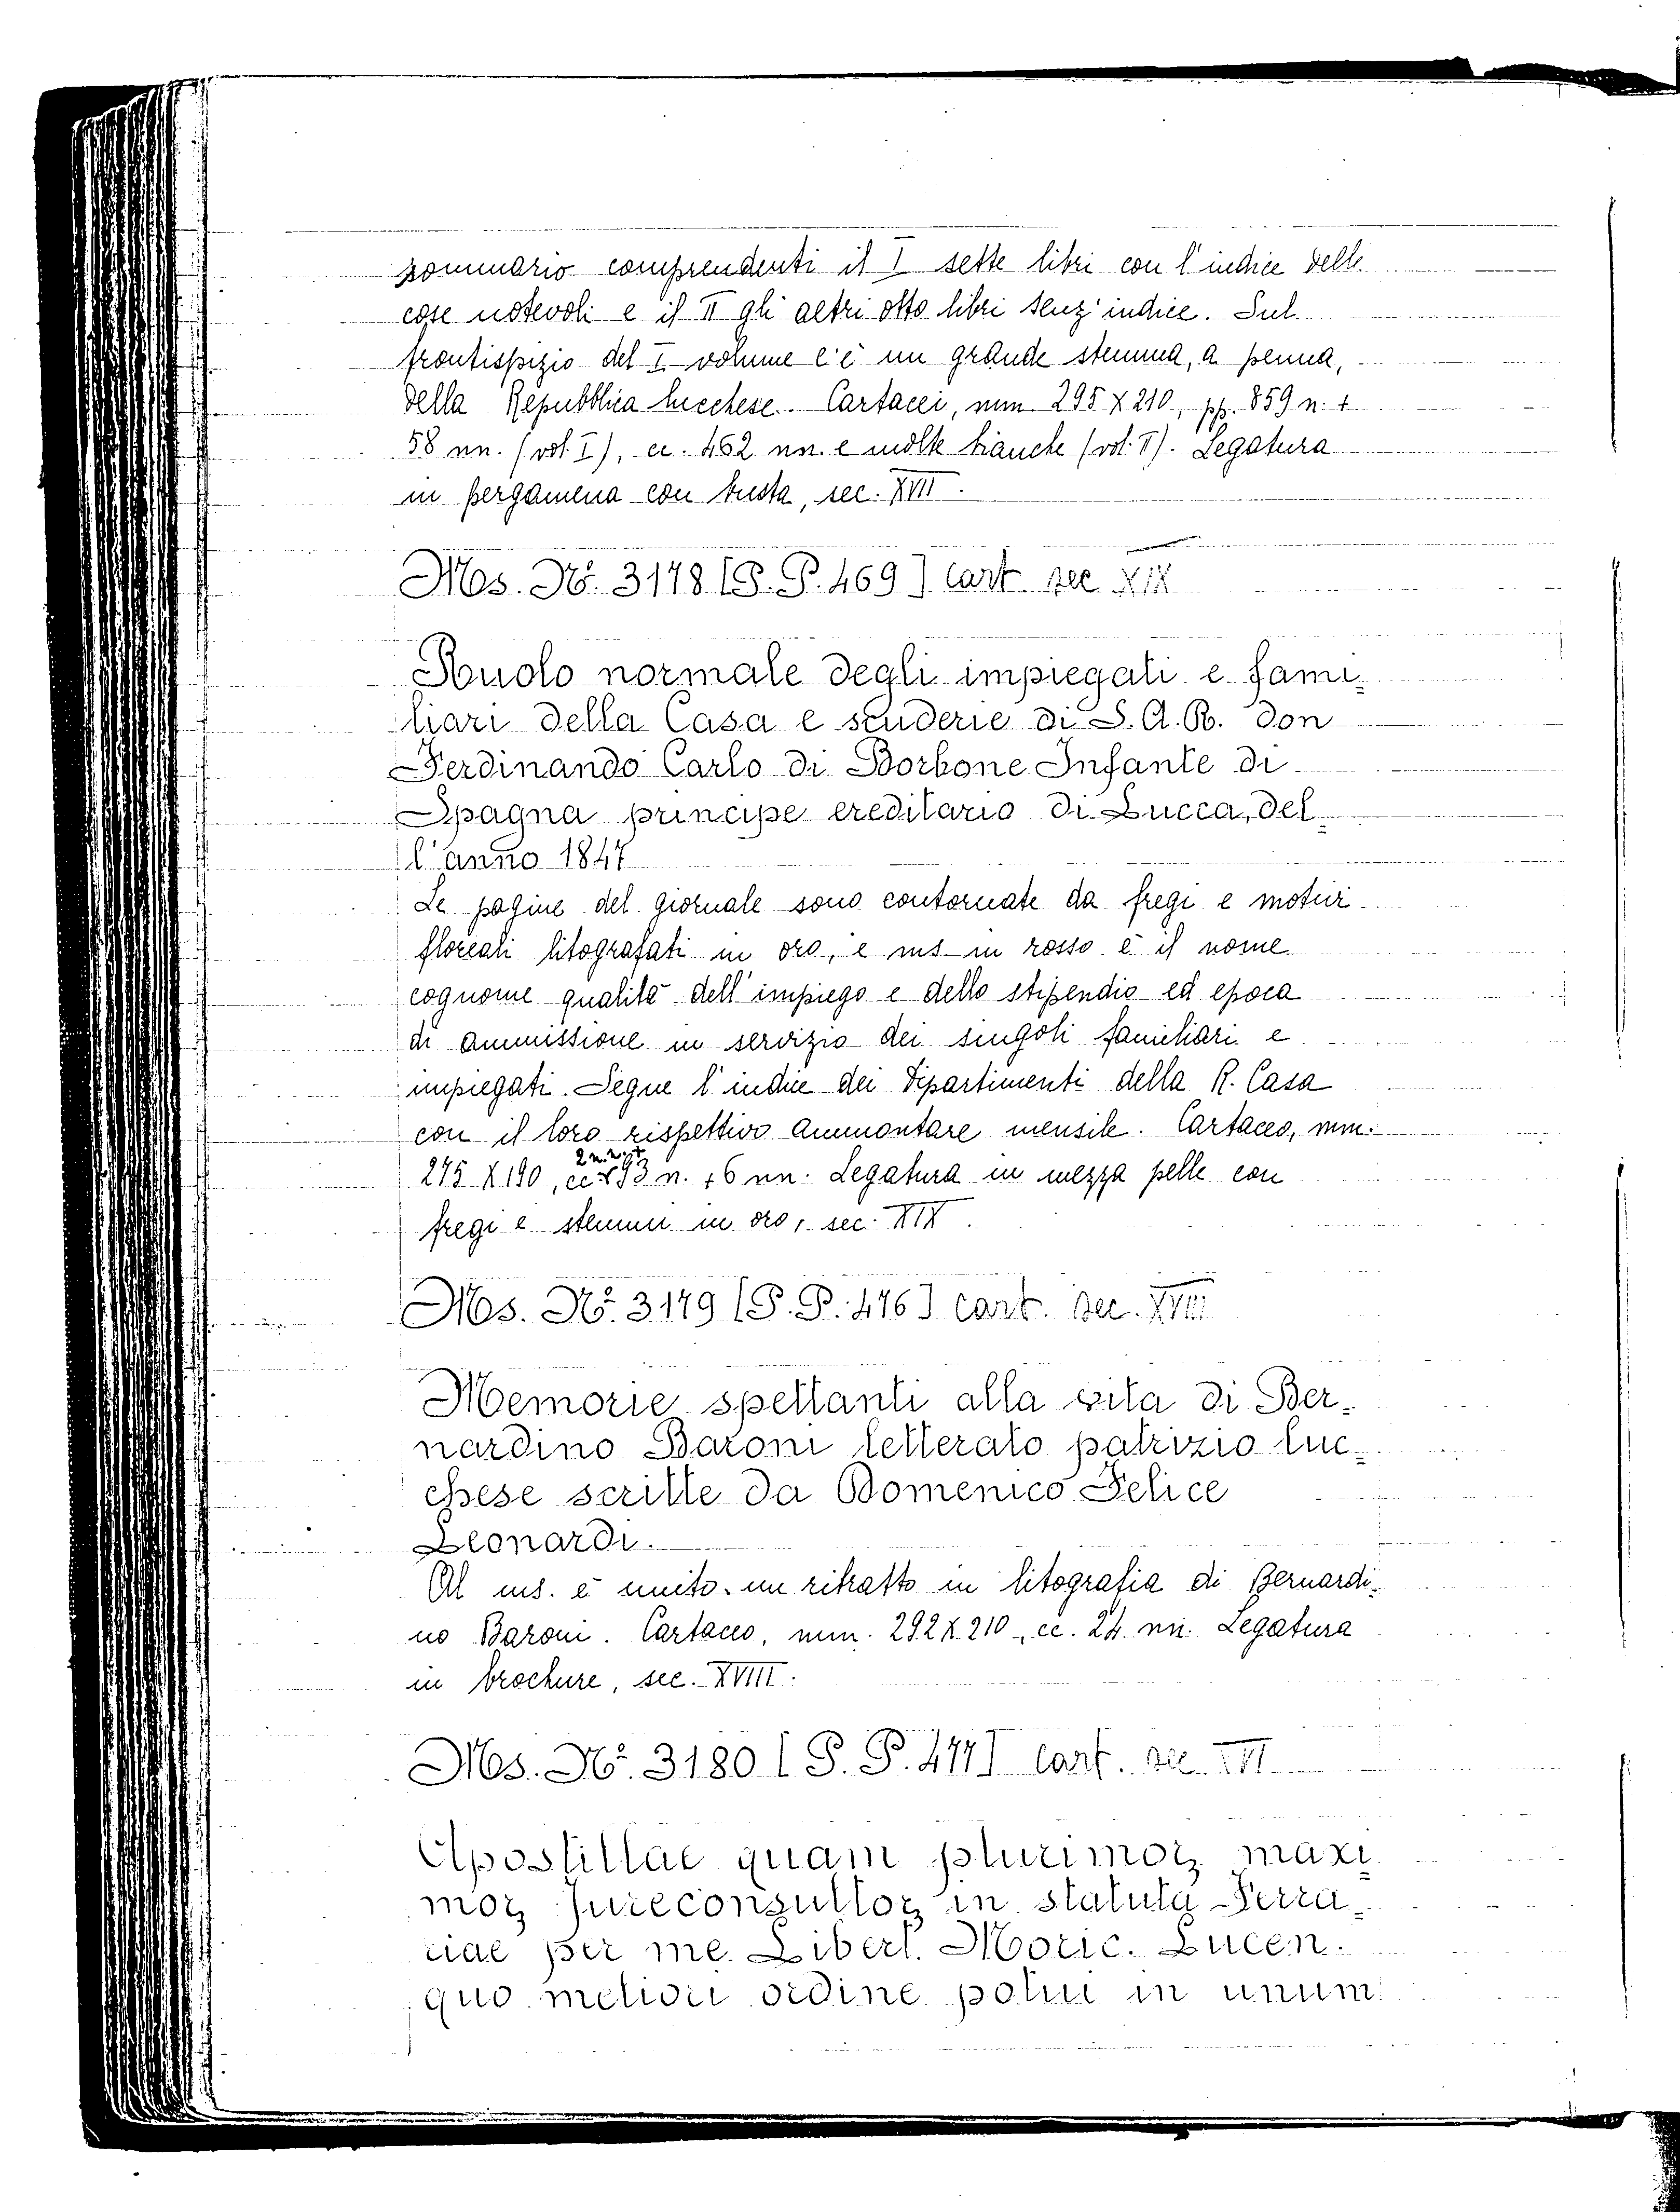 sommario comprendenti il I sette libri con l'indice delle
cose notevoli e il II gli altri otto libri senz'indice. Sul
frontispizio del I volume c'è un grande stemma, a penna,
della Repubblica lucchese. Cartacei, mm. 295 X 210, pp. 859 n. +
58 nn. (vol. I), cc. 462 nn. e molte bianche (vol. II). Legatura
in pergamena con busta, sec. XVII.
Ms. Nº. 3178 [P. P. 469] cart. sec. XIX
Ruolo normale degli impiegati e fami-
liari della Casa e scuderie di S. A. R. don
Ferdinando Carlo di Borbone Infante di
Spagna principe ereditario di Lucca, del-
l'anno 1847
Le pagine del giornale sono contornate da fregi e motivi
floreali litografati in oro, e ms. in rosso è il nome
cognome qualità dell'impiego e dello stipendio ed epoca
di ammissione in servizio dei singoli familiari e
impiegati. Segue l'indice dei Dipartimenti della R. Casa
con il loro rispettivo ammontare mensile. Cartaceo, mm.
275 X 190, cc. 2 n.n. + 93 n. + 6 nn. Legatura in mezza pelle con
fregi e stemmi in oro, sec. XIX.
Ms. Nº. 3179 [P. P. 476] cart. sec. XVIII
Memorie spettanti alla vita di Ber-
nardino Baroni letterato patrizio luc-
chese scritte da Domenico Felice
Leonardi.
Al ms. è unito un ritratto in litografia di Bernardi-
no Baroni. Cartaceo, mm. 292 X 210, cc. 24 nn. Legatura
in brochure, sec. XVIII.
Ms. Nº. 3180 [P. P. 477] cart. sec. XVI.
Apostillae quam plurimoꝝ maxi-
moꝝ Jureconsultoꝝ in statuta Ferra-
riae per me Libert. Moric. Lucen.
quo meliori ordine potui in unum